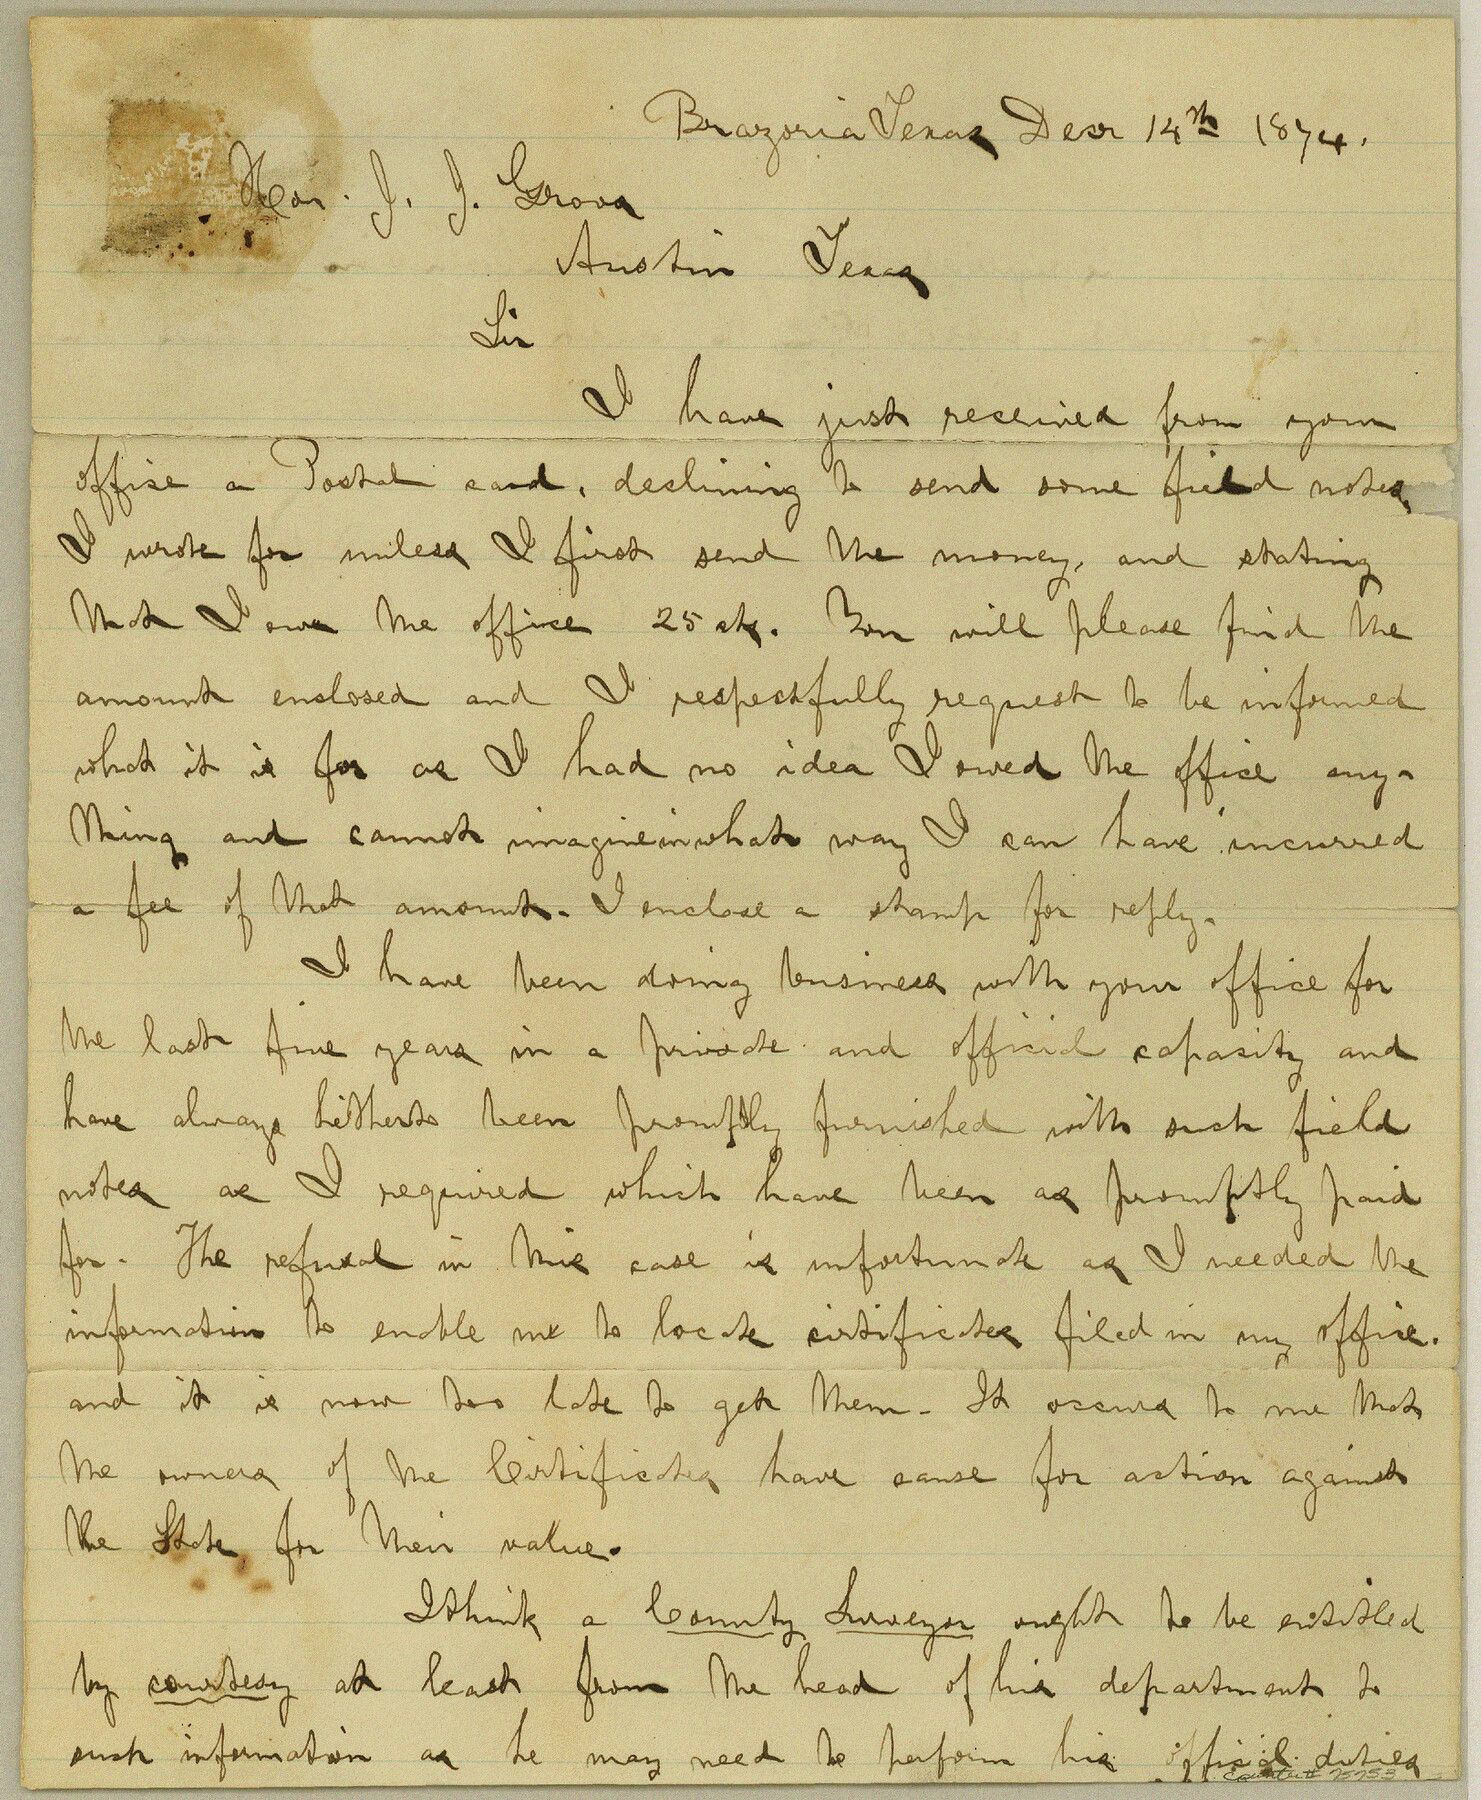 Brazoria Texas Decr 14th 1874.
Hon. J. J. Groos
Austin Texas
Sir
I have just received from your
office a Postal card, declining to send some field notes
I wrote for unless I first send the money, and stating
that I owe the office 25 cts. You will please find the
amount enclosed and I respectfully request to be informed
what it is for as I had no idea I owed the office any-
thing and cannot imagine in what way I can have incurred
a fee of that amount. I enclose a stamp for reply.
I have been doing business with your office for
the last five years in a private and official capacity and
have always hitherto been promptly furnished with such field
notes as I required which have been as promptly paid
for. The refusal in this case is unfortunate as I needed the
information to enable me to locate certificates filed in my office.
and it is now too late to get them. It occurs to me that
the owners of the Certificates have cause for action against
the State for their value.
I think a County Surveyor ought to be entitled
by courtesy at least from the head of his department to
such information as he may need to perform his official duties
Counter # 75753